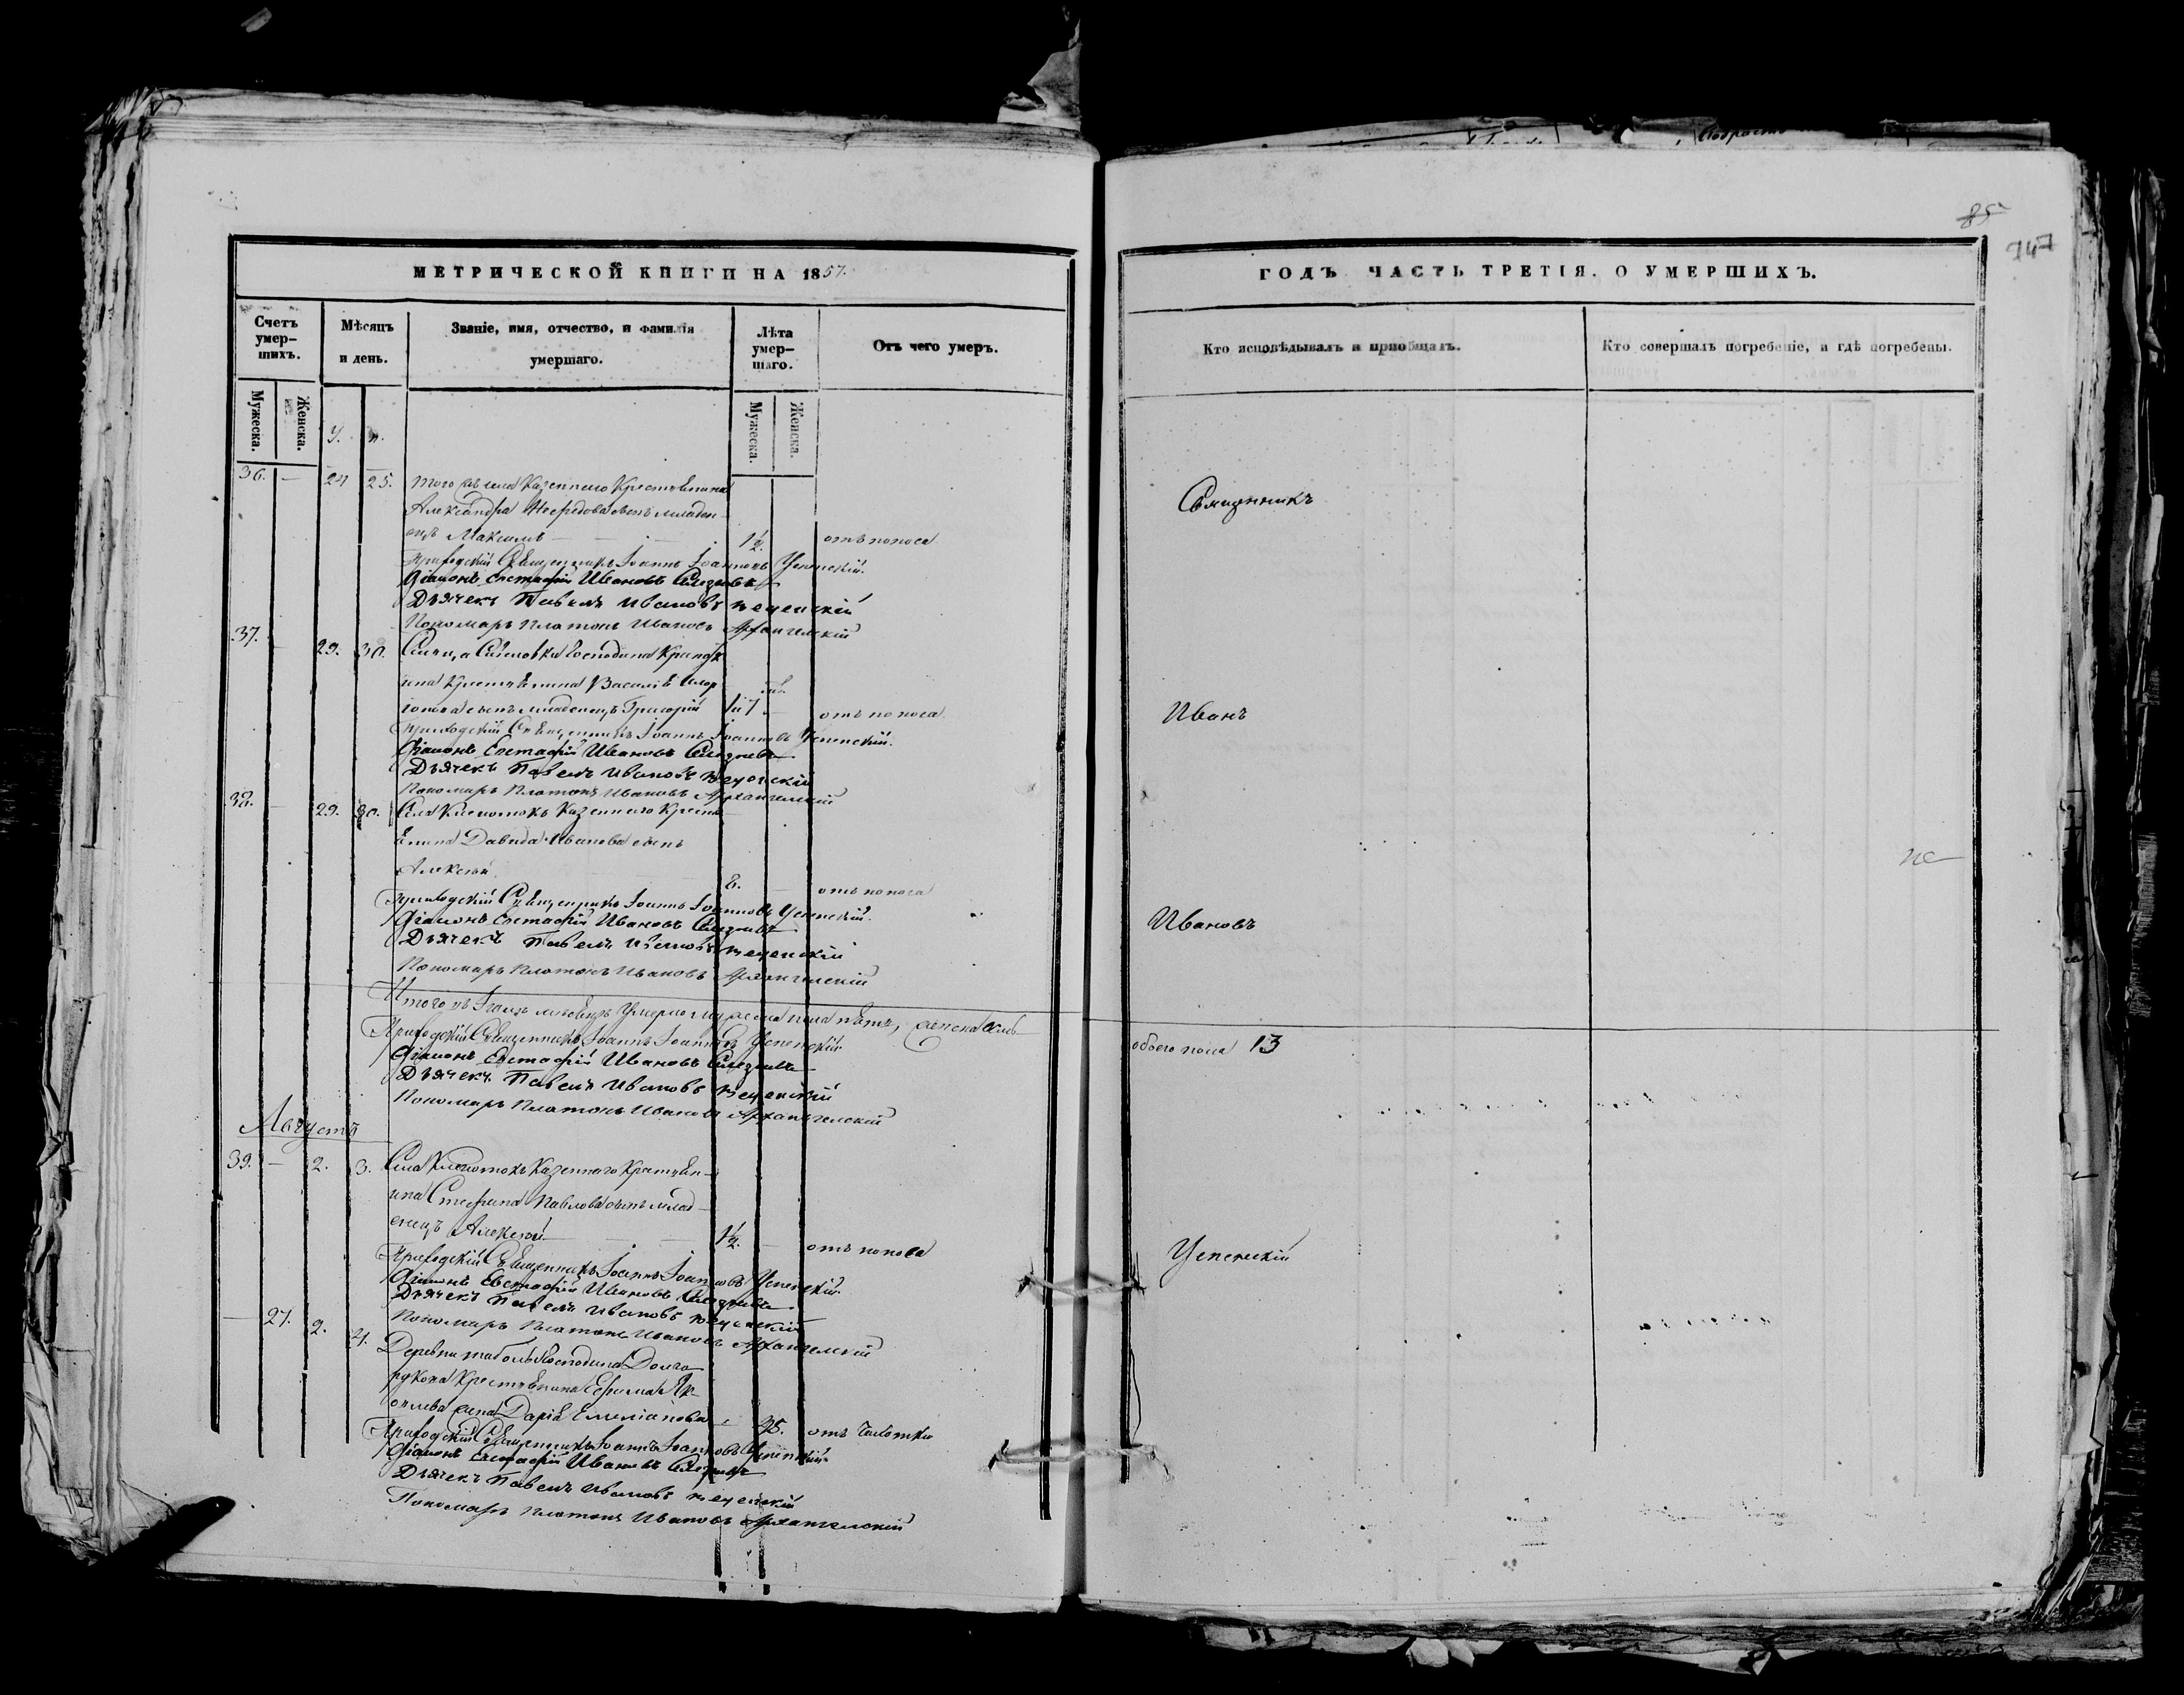 85
947
МЕТРИЧЕСКОЙ КНИГИ НА 1857.
ГОДЪ ЧАСТЬ ТРЕТІЯ. О УМЕРШИХЪ.
Счетъ умер-шихъ.
Мѣсяцъ и день.
Званіе, имя, отчество, и фамилія умершаго.
Лѣта умер-шаго.
Отъ чего умеръ.
Кто исповѣдывалъ и приобщалъ.
Кто совершалъ погребеніе, и гдѣ погребены.
Мужеска.
Женска.
Мужеска.
Женска.
У. п.
36. — 24 25. того же села Казеннаго Крестьянина
Александра сынъ младен-
ецъ Максимъ — 1½. отъ поноса
Приходскій Священникъ Іоаннъ Іоанновъ Успенскій.
Діаконъ Евстафій Ивановъ
Дьячекъ Павелъ Ивановъ
Пономарь Платонъ Ивановъ Архангельскій
37. — 29. 30. Господина
ина Крестьянина Василія
сынъ младенецъ Григорій отъ поноса
Приходскій Священникъ Іоаннъ Іоанновъ Успенскій.
Діаконъ Евстафій Ивановъ
Дьячекъ Павелъ Ивановъ
Пономарь Платонъ Ивановъ Архангельскій
38. — 29. 30. Села Казеннаго Крестья-
нина Давида Иванова сынъ
Алексѣй. 8. — отъ поноса
Приходскій Священникъ Іоаннъ Іоанновъ Успенскій.
Діаконъ Евстафій Ивановъ
Дьячекъ Павелъ Ивановъ
Пономарь Платонъ Ивановъ Архангельскій
Итого въ Іюлѣ мѣсяцѣ Умерло мужеска пола пять, женска
Приходскій Священникъ Іоаннъ Іоанновъ Успенскій
Діаконъ Евстафій Ивановъ
Дьячекъ Павелъ Ивановъ
Пономарь Платонъ Ивановъ Архангельскій
Августъ
39. — 2. 3. Села Казеннаго Крестьян-
ина Стефана Павлова сынъ млад-
енецъ Алексѣй 1½. — отъ поноса
Приходскій Священникъ Іоаннъ Іоанновъ Успенскій.
Діаконъ Евстафій Ивановъ
Дьячекъ Павелъ Ивановъ
Пономарь Платонъ Ивановъ Архангельскій
— 27. 2. 4. Деревни Господина Долго-
рукова Крестьянина Ефима Як-
овлева жена Дарія Емеліанова 35. отъ чахотки
Приходскій Священникъ Іоаннъ Іоанновъ Успенскій
Діаконъ Евстафій Ивановъ
Дьячекъ Павелъ Ивановъ
Пономарь Платонъ Ивановъ Архангельскій
Священникъ
Иванъ
Ивановъ
обоего пола 13
Успенскій